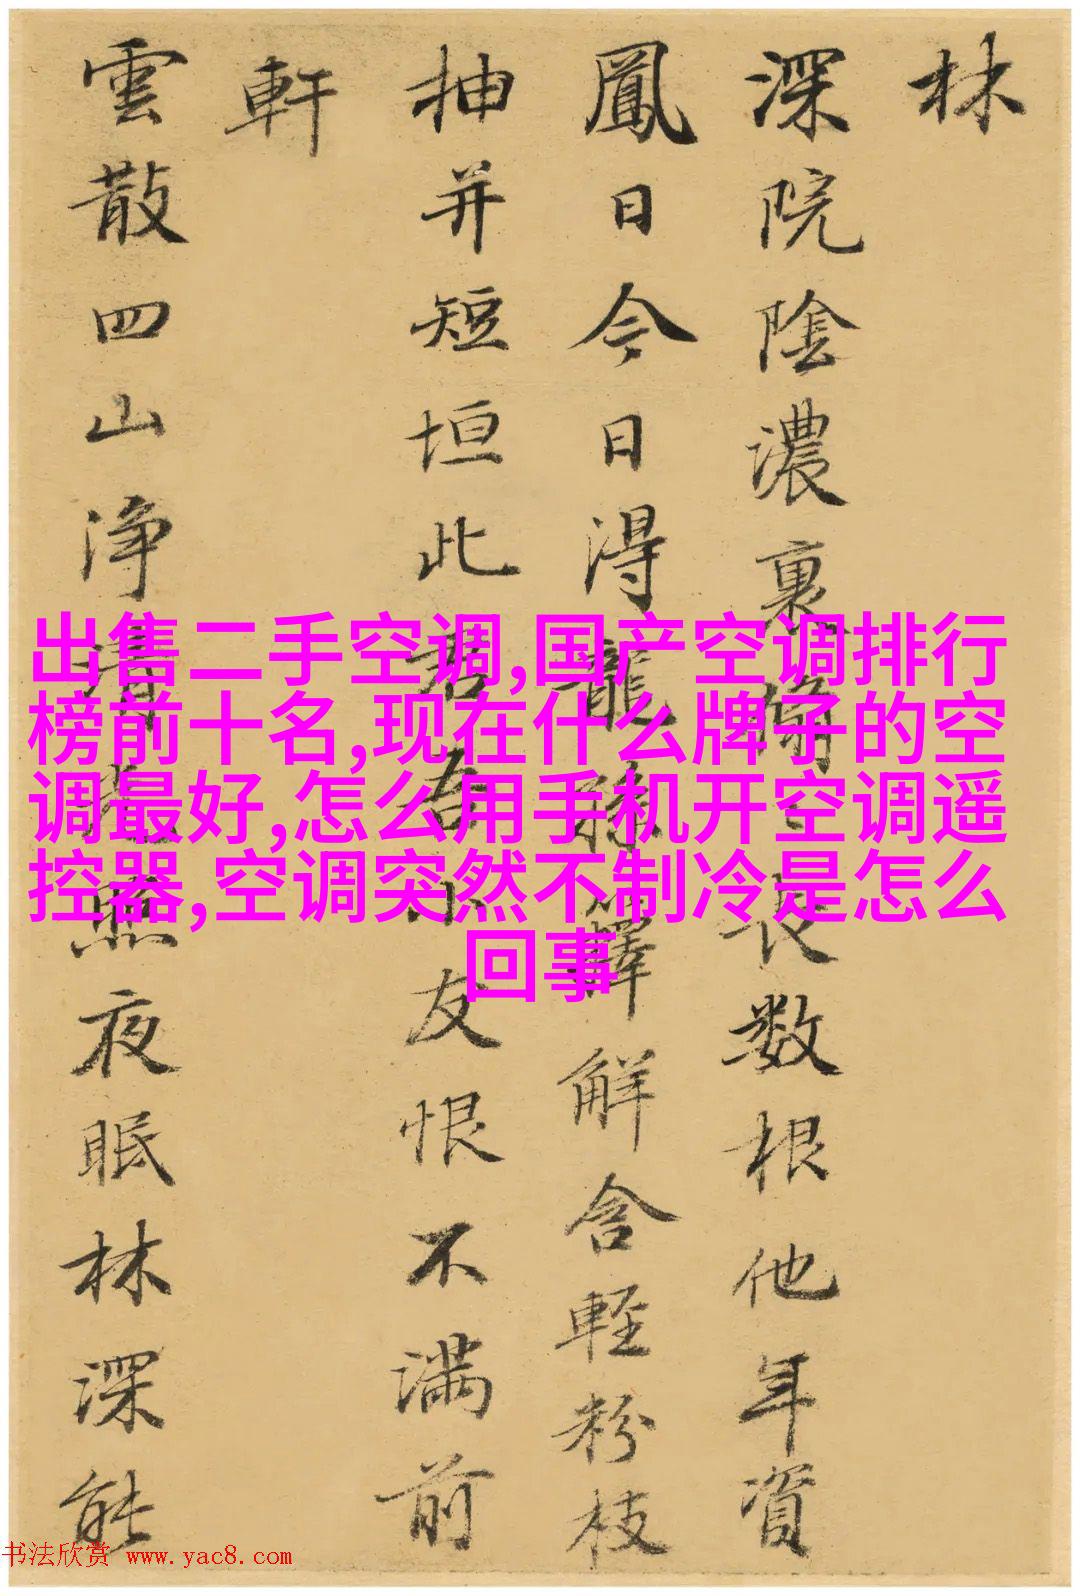 林
深院陰濃裏長数根他年資
鳳日今日得龍孫籜解含輕粉枝
抽并短垣此君吾小友恨不满前
軒
雲散四山浄清光照夜眠林深能
出售二手空调,国产空调排行
榜前十名,现在什么牌子的空
调最好,怎么用手机开空调遥
控器,空调突然不制冷是怎么
回事
书法欣赏 www.yac8.com